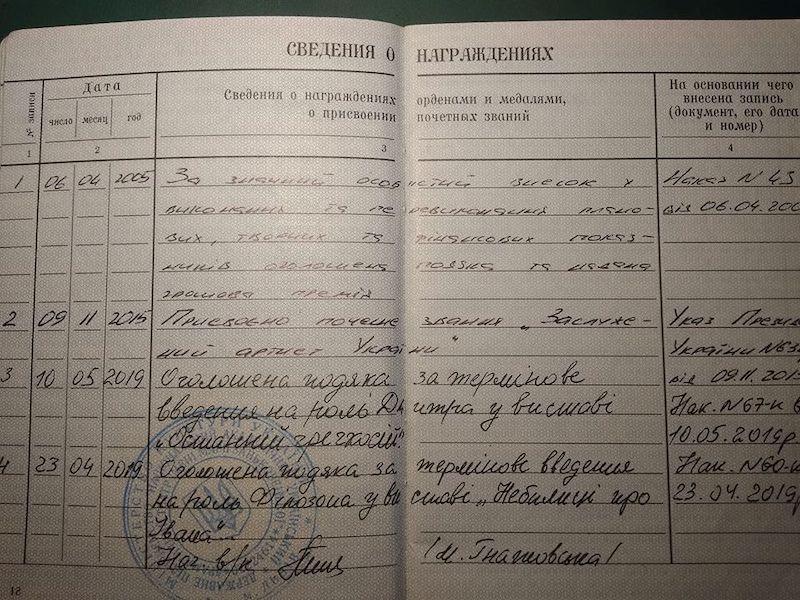 СВЕДЕНИЯ О НАГРАЖДЕНИЯХ
№ записи
Дата
число месяц год
Сведения о награждениях орденами и медалями,
о присвоении почетных званий
На основании чего
внесена запись
(документ, его дата
и номер)
1 2 3 4
1 06 04 2005 За значний особистий внесок у Наказ N 43
виконання та перевиконання плано- від 06.04.200
вих, творчих та фінансових показ-
ників оголошена подяка та надана
грошова премія
2 09 11 2015 Присвоєно почесне звання „Заслуже- Указ Прези
ний артист України" України N63
3 10 05 2019 Оголошена подяка за термінове від 09.11.201
введення на роль Дмитра у виставі Нак. N67-к
„Останній 10.05.2019р.
4 23 04 2019 Оголошена подяка за термінове введення Нак. N60-к
на роль Філозопа у виставі „Небилиці про 23.04.2019р
Івана".
Нач. в/к
12